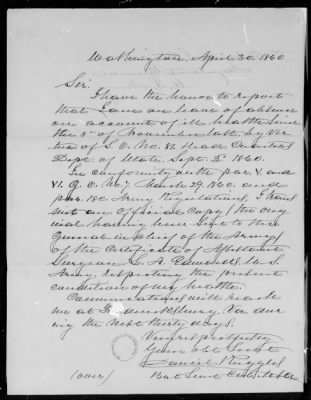 Washington, April 30. 1860
Sir.
I have the honor to report
that I am on leave of absence
on account of ill health since
the 8th of November last, by vir
tue of S. O. No. 81. Head Quarters
Dept. of Utah, Sept. 1860.
In conformity with par. V. and
VI. G. O. No. 7, March 29. 1860. and
par. 180. Army Regulations, I trans
mit an Official Copy (the orig
inal having been sent to the
General in Chief of the Army)
of the Certificate of Assistant
Surgeon Edwards, U. S.
Army, respecting the present
condition of my health.
Communications will reach
me at Fredericksburg, Va. du
ring the next thirty days.
Very respectfully
Your Obt. Servt.
Daniel Ruggles
(over)